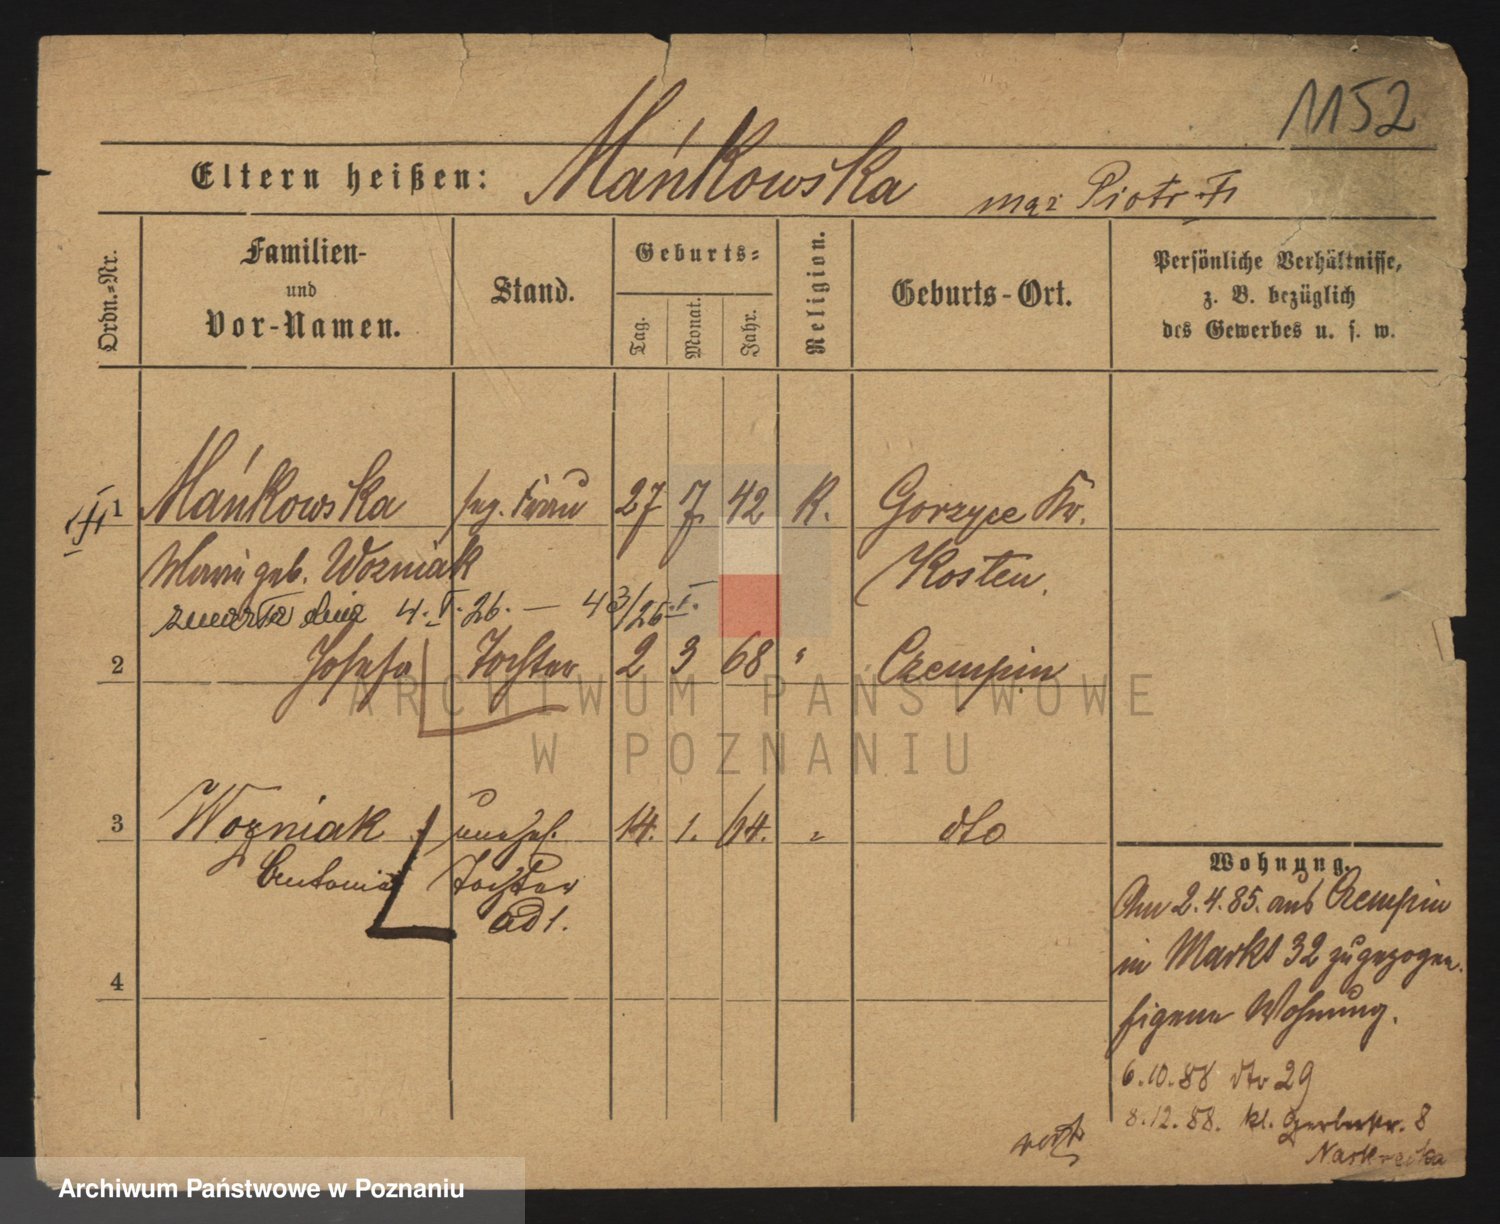 1152
Eltern heißen: Mańkowska mąż Piotr
Ordn.=Nr.
Familien-
und
Vor-Namen.
Stand.
Geburts=
Tag.
Monat.
Jahr.
Religion.
Geburts-Ort.
Persönliche Verhältnisse,
z. B. bezüglich
des Gewerbes u. s. w.
1 Mańkowska Frau 27 7 42 K. Gorzyce Kr.
Marie geb. Wozniak Kosten.
zmarła dnia 4. I. 26. — 43/26
2 Josefa Tochter 2 3 68 " Czempin
3 Wozniak unehel. 14. 1. 64. " dto
Antonia Tochter
ad 1.
4
Wohnung.
Am 2.4.85. aus Czempin
in Markt 32 zugezogen.
Eigene Wohnung.
6.10.88 dto 29
8.12.88. kl. Gerberstr. 8
ARCHIWUM PAŃSTWOWE
W POZNANIU
Archiwum Państwowe w Poznaniu